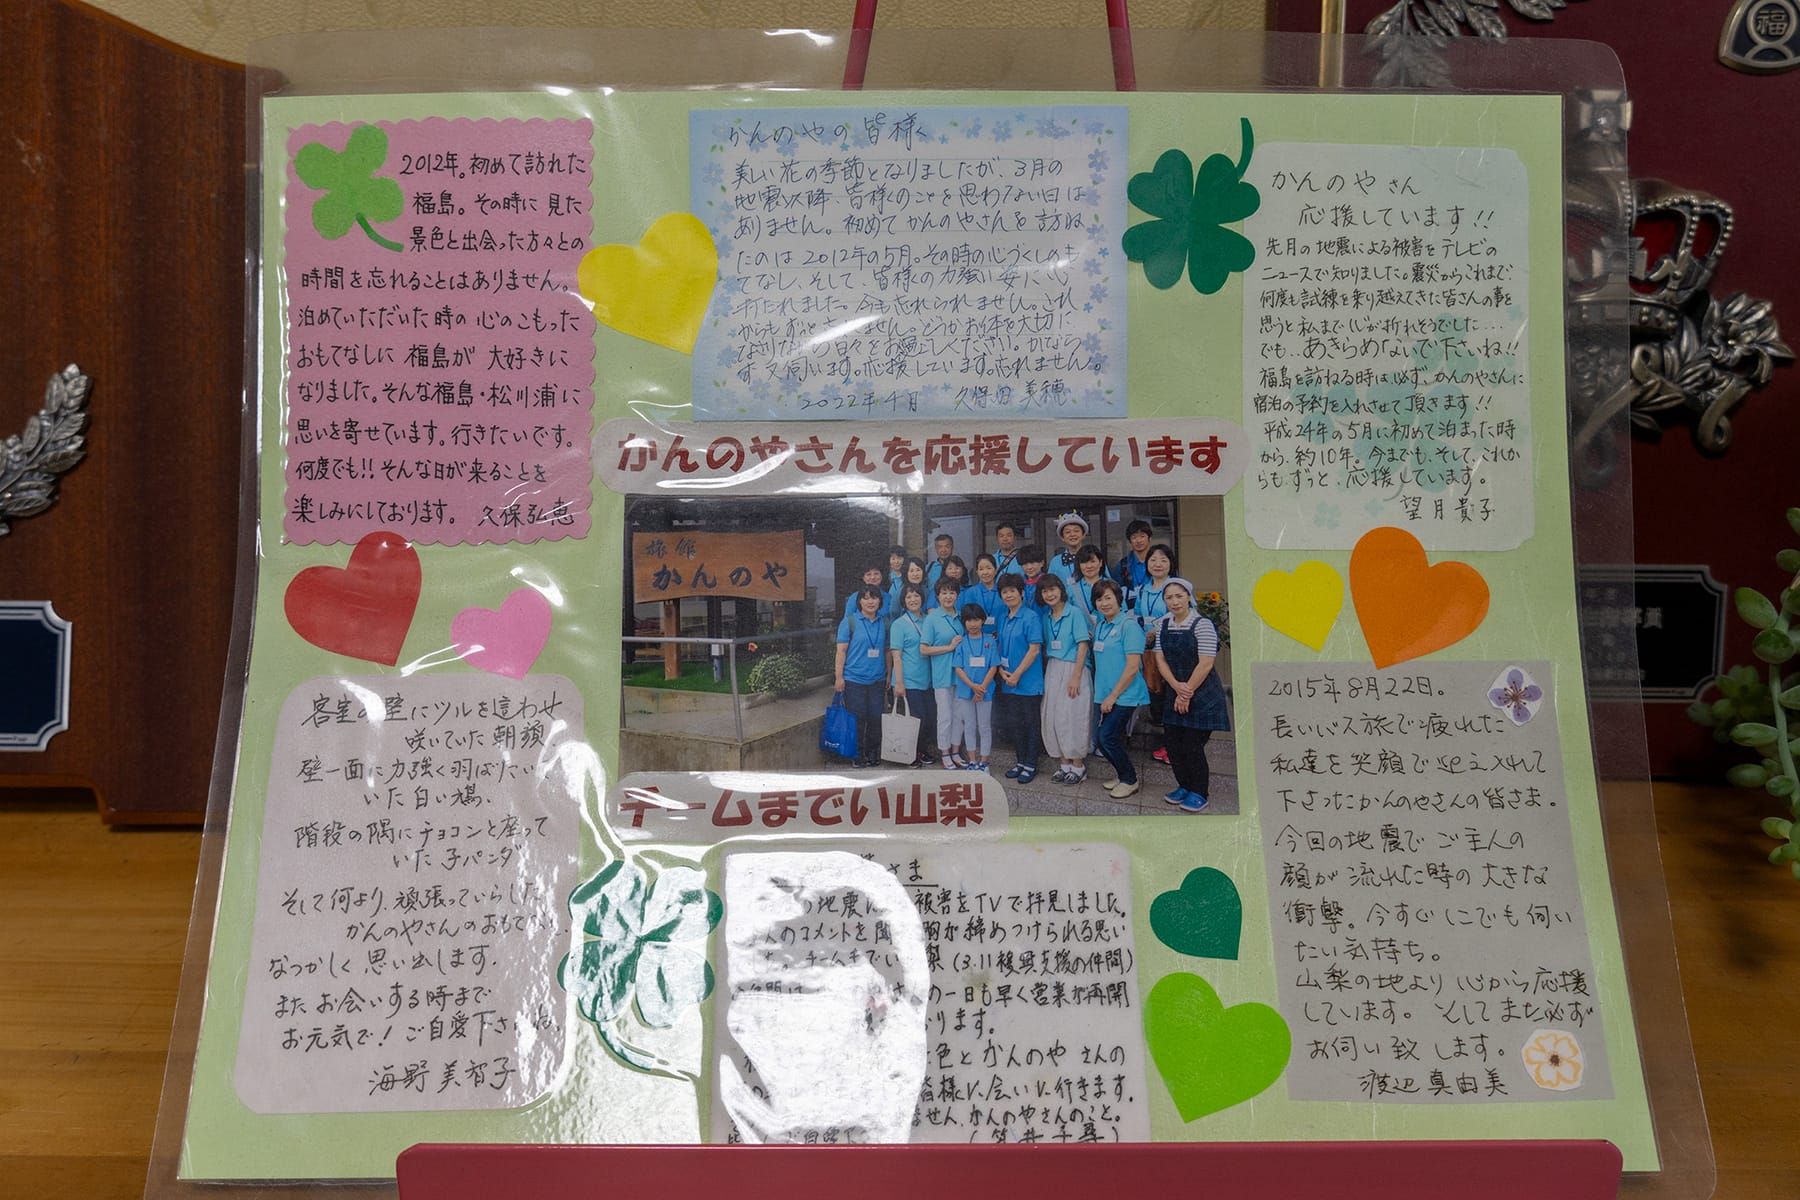 2012年。初めて訪れた
福島。その時に見た
景色と出会った方々との
時間を忘れることはありません。
泊めていただいた時の心のこもった
おもてなしに福島が大好きに
なりました。そんな福島・松川浦に
思いを寄せています。行きたいです。
何度でも!!そんな日が来ることを
楽しみにしております。 久保弘恵
かんのやの皆様へ
美しい花の季節となりましたが、3月の
地震以降、皆様のことを思わない日は
ありません。初めてかんのやさんを訪ね
たのは2012年の5月。その時の心づくしのも
てなし、そして、皆様の力強い姿に心
打たれました。今も忘れられません。これ
からもずっと忘れません。どうかお体を大切に
日々をお過しください。かなら
ず又伺います。応援しています。忘れません。
2022年4月 久保田美穂
かんのやさん
応援しています!!
先月の地震による被害をテレビの
ニュースで知りました。震災からこれまで、
何度も試練を乗り越えてきた皆さんの事を
思うと私まで心が折れそうでした...
でも..あきらめないで下さいね!!
福島を訪ねる時は必ず、かんのやさんに
宿泊の予約を入れさせて頂きます!!
平成24年の5月に初めて泊まった時
から、約10年。今までも、そして、これか
らも、ずっと、応援しています。
望月貴子
かんのやさんを応援しています
旅館
かんのや
チームまでい山梨
客室の壁にツルを這わせ
咲いていた朝顔、
壁一面に力強く羽ばたいて
いた白い鳩、
階段の隅にチョコンと座って
いた子パンダ
そして何より、頑張っていらした
かんのやさんのおもて
なつかしく思い出します。
またお会いする時まで
お元気で!ご自愛下さいね。
海野美智子
さま
地震に 被害をTVで拝見しました。
人のコメントを聞 胸が締めつけられる思い
チームまでい 梨(3.11復興支援の仲間)
の一日も早く営業が再開
ります。
色とかんのやさんの
皆様に会いに行きます。
せん、かんのやさんのこと。
2015年8月22日。
長いバス旅で疲れた
私達を笑顔で迎え入れて
下さったかんのやさんの皆さま。
今回の地震でご主人の
顔が流れた時の大きな
衝撃。今すぐにでも伺い
たい気持ち。
山梨の地より心から応援
しています。そしてまた必ず
お伺い致します。
渡辺真由美
福